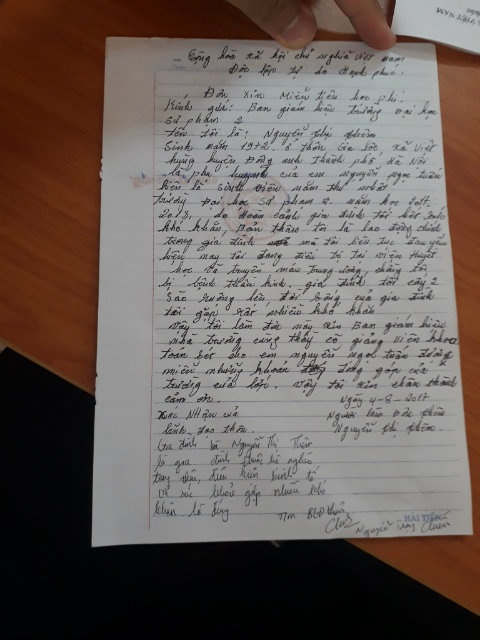 VIỆT NAM
Cộng hòa xã hội chủ nghĩa việt nam
Độc lập tự do Hạnh phúc.
Đơn, Xin Miễn tiền học phí.
Kính gửi: Ban giám hiệu trường Đại học
sư phạm 2
tên tôi là! Nguyễn thị
Sinh năm 1972. ở thôn Gia lộc, xã Việt
hùng huyện Đông anh Thành phố Hà Nội
là phụ huynh của em nguyễn ngọc tuấn
hiện là sinh viên năm thứ nhất
trường Đại học sư phạm 2. năm học
do hoàn cảnh gia đình tôi hết sức
khó khăn, bản thân tôi là lao động chính
trong gia đình mà tôi liên tục đau yếu
hiện nay tôi đang điều trị tại viện Huyết
học và truyền máu trung ương, chồng tôi
bị bệnh thần kinh. gia đình tôi cấy 2
sào ruộng lên đời sống của gia đình
tôi gặp rất nhiều khó khăn
vậy tôi làm đơn này xin Ban giám hiệu
nhà trường cùng thầy cô giảng viên khoa
toán bớt cho em nguyễn ngọc tuấn được
miễn những khoản đóng góp của
trường của lớp. vậy tôi xin chân thành
cảm ơn. Ngày 4-8-2017
Xác Nhận của Người làm đơn
lãnh đạo thôn Nguyễn thị
Gia đình bà Nguyễn Thị
là gia đình thuộc hộ nghèo
trong thôn, điều kiện kinh tế
và sức khỏe gặp nhiều khó
khăn là đúng
TM BLĐ thôn
Nguyễn Duy
HẢI TIẾN